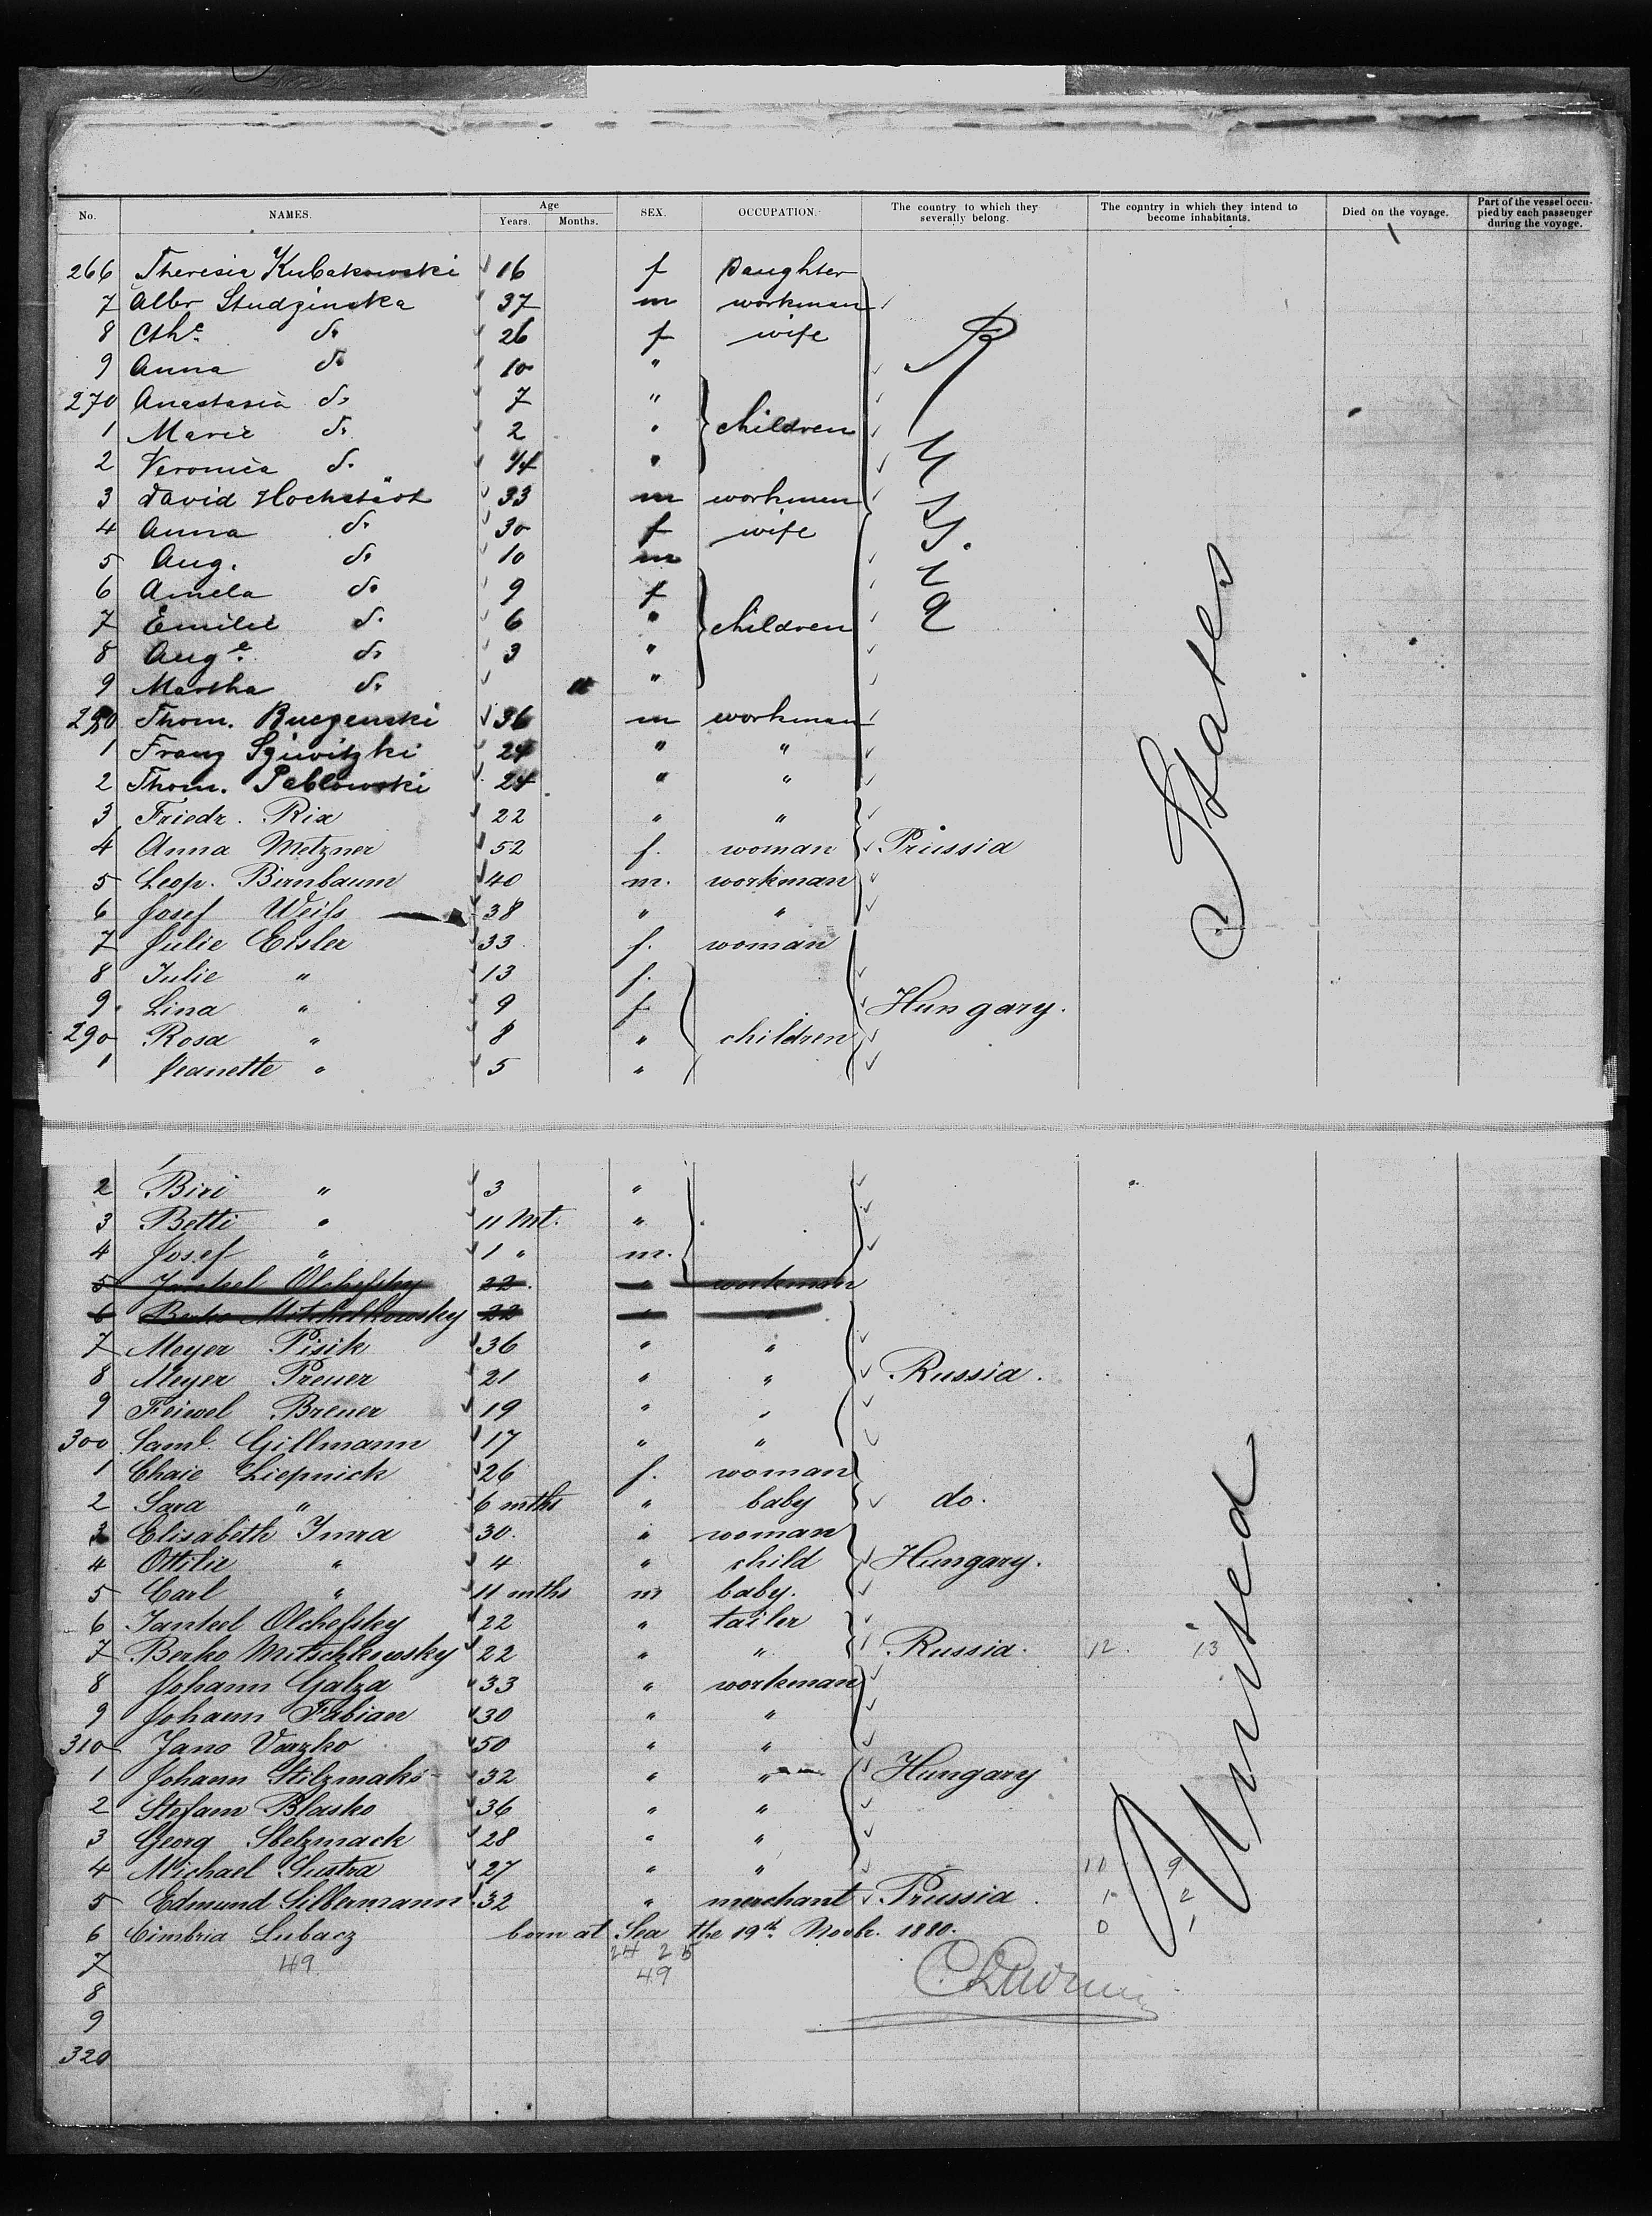 No. NAMES. Age Years. Months. SEX. OCCUPATION. The country to which they severally belong. The country in which they intend to become inhabitants. Died on the voyage. Part of the vessel occupied by each passenger during the voyage.
266 Theresia Kubakowski 16 f Daughter
7 Albr Studzinska 37 m workman
8 Cthe do 26 f wife
9 Anna do 10 "
270 Anastasia do 7 "
1 Marie do 2 " children
2 Veronica do 1/4 "
3 David Hochstädt 33 m workmen
4 Anna do 30 f wife
5 Aug. do 10 m
6 Amela do 9 f
7 Emilie do 6 " children
8 Auge do 3 "
9 Martha do "
280 Thom. Ruczenski 36 m workman
1 Franz 24 " "
2 Thom. Pablowski 24 " "
3 Friedr. Rix 22 " "
4 Anna Metzner 52 f. woman Prussia
5 Leop. Birnbaum 40 m. workman
6 Josef Weifs 38 " "
7 Julie Eisler 33 f. woman
8 Julie " 13 f.
9 Lina " 9 f Hungary.
290 Rosa " 8 " children
1 Jeanette " 5 "
2 Biri " 3 "
3 Betti " 11 Mt. "
4 Josef " 1 " m.
5 Jankel Olchefsky 22. " workman
6 Berko Mitschelkowsky 22 " "
7 Meyer Pisik 36 " "
8 Meyer Preuer 21 " " Russia.
9 Feiwel Breuer 19 " "
300 Saml. Gillmann 17 " "
1 Chaie Liepnick 26 f. woman
2 Sara " 6 mths " baby do.
3 Elisabeth Imra 30. " woman
4 Ottilie " 4 " child Hungary.
5 Carl " 11 mths m baby.
6 Jankel Olchefsky 22 " tailer
7 Berko Mitschkowsky 22 " " Russia. 12. 13
8 Johann Galza 33 " workman
9 Johann Fabian 30 " "
310 Jano Varzko 50 " "
1 Johann Stilzmaks 32 " " Hungary
2 Stefam Blasko 36 " "
3 Georg Stelzmack 28 " "
4 Michael Sustra 27 " " 11 9
5 Edmund Silbermann 32 " merchant Prussia. 1 2
6 Cimbria Lubacz born at Sea the 19th Novbr. 1880. 0 1
7 49 24 25
8 49
9
320
United States